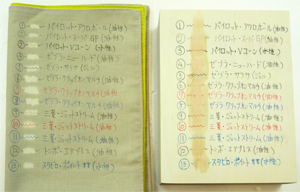 ① パイロット・アクロボール(油性)
② パイロット・スーパーGP(油性)
③ パイロット・Vコーン(水性)
④ ゼブラ・ニューハード(油性)
⑤ ゼブラ・サラサ(ジェル)
⑥ ゼブラ・クリップオンマルチ(油性)
⑦ ゼブラ・クリップオンマルチ(油性)
⑧ ゼブラ・クリップオンマルチ(油性)
⑨ 三菱・ジェットストリーム(油性)
⑩ 三菱・ジェットストリーム(油性)
⑪ 三菱・ジェットストリーム(油性)
⑫ トンボ・エアプレス(油性)
⑬ スタビロ・ポイント88(水性)
① パイロット・アクロボール(油性)
② パイロット・スーパーGP(油性)
③ パイロット・Vコーン(水性)
④ ゼブラ・ニューハード(油性)
⑤ ゼブラ・サラサ(ジェル)
⑥ ゼブラ・クリップオンマルチ(油性)
⑦ ゼブラ・クリップオンマルチ(油性)
⑧ ゼブラ・クリップオンマルチ(油性)
⑨ 三菱・ジェットストリーム(油性)
⑩ 三菱・ジェットストリーム(油性)
⑪ 三菱・ジェットストリーム(油性)
⑫ トンボ・エアプレス(油性)
⑬ スタビロ・ポイント88(水性)